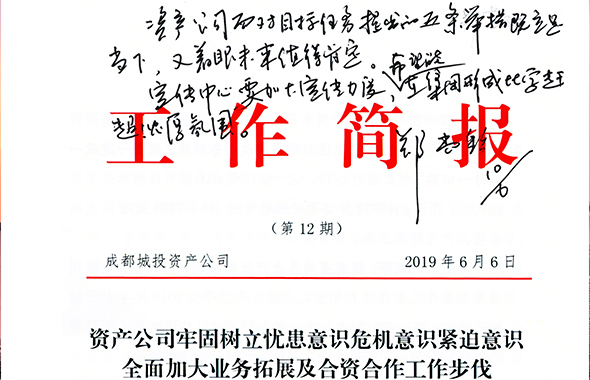 资产公司面对目标任务提出的五条举措既立足
当下，又着眼未来值得肯定。
宣传中心要加大宣传力度，希望能
在集团形成比学赶
超浓厚氛围。
工作简报
郑
10/6
（第12期）
成都城投资产公司 2019年6月6日
资产公司牢固树立忧患意识危机意识紧迫意识
全面加大业务拓展及合资合作工作步伐